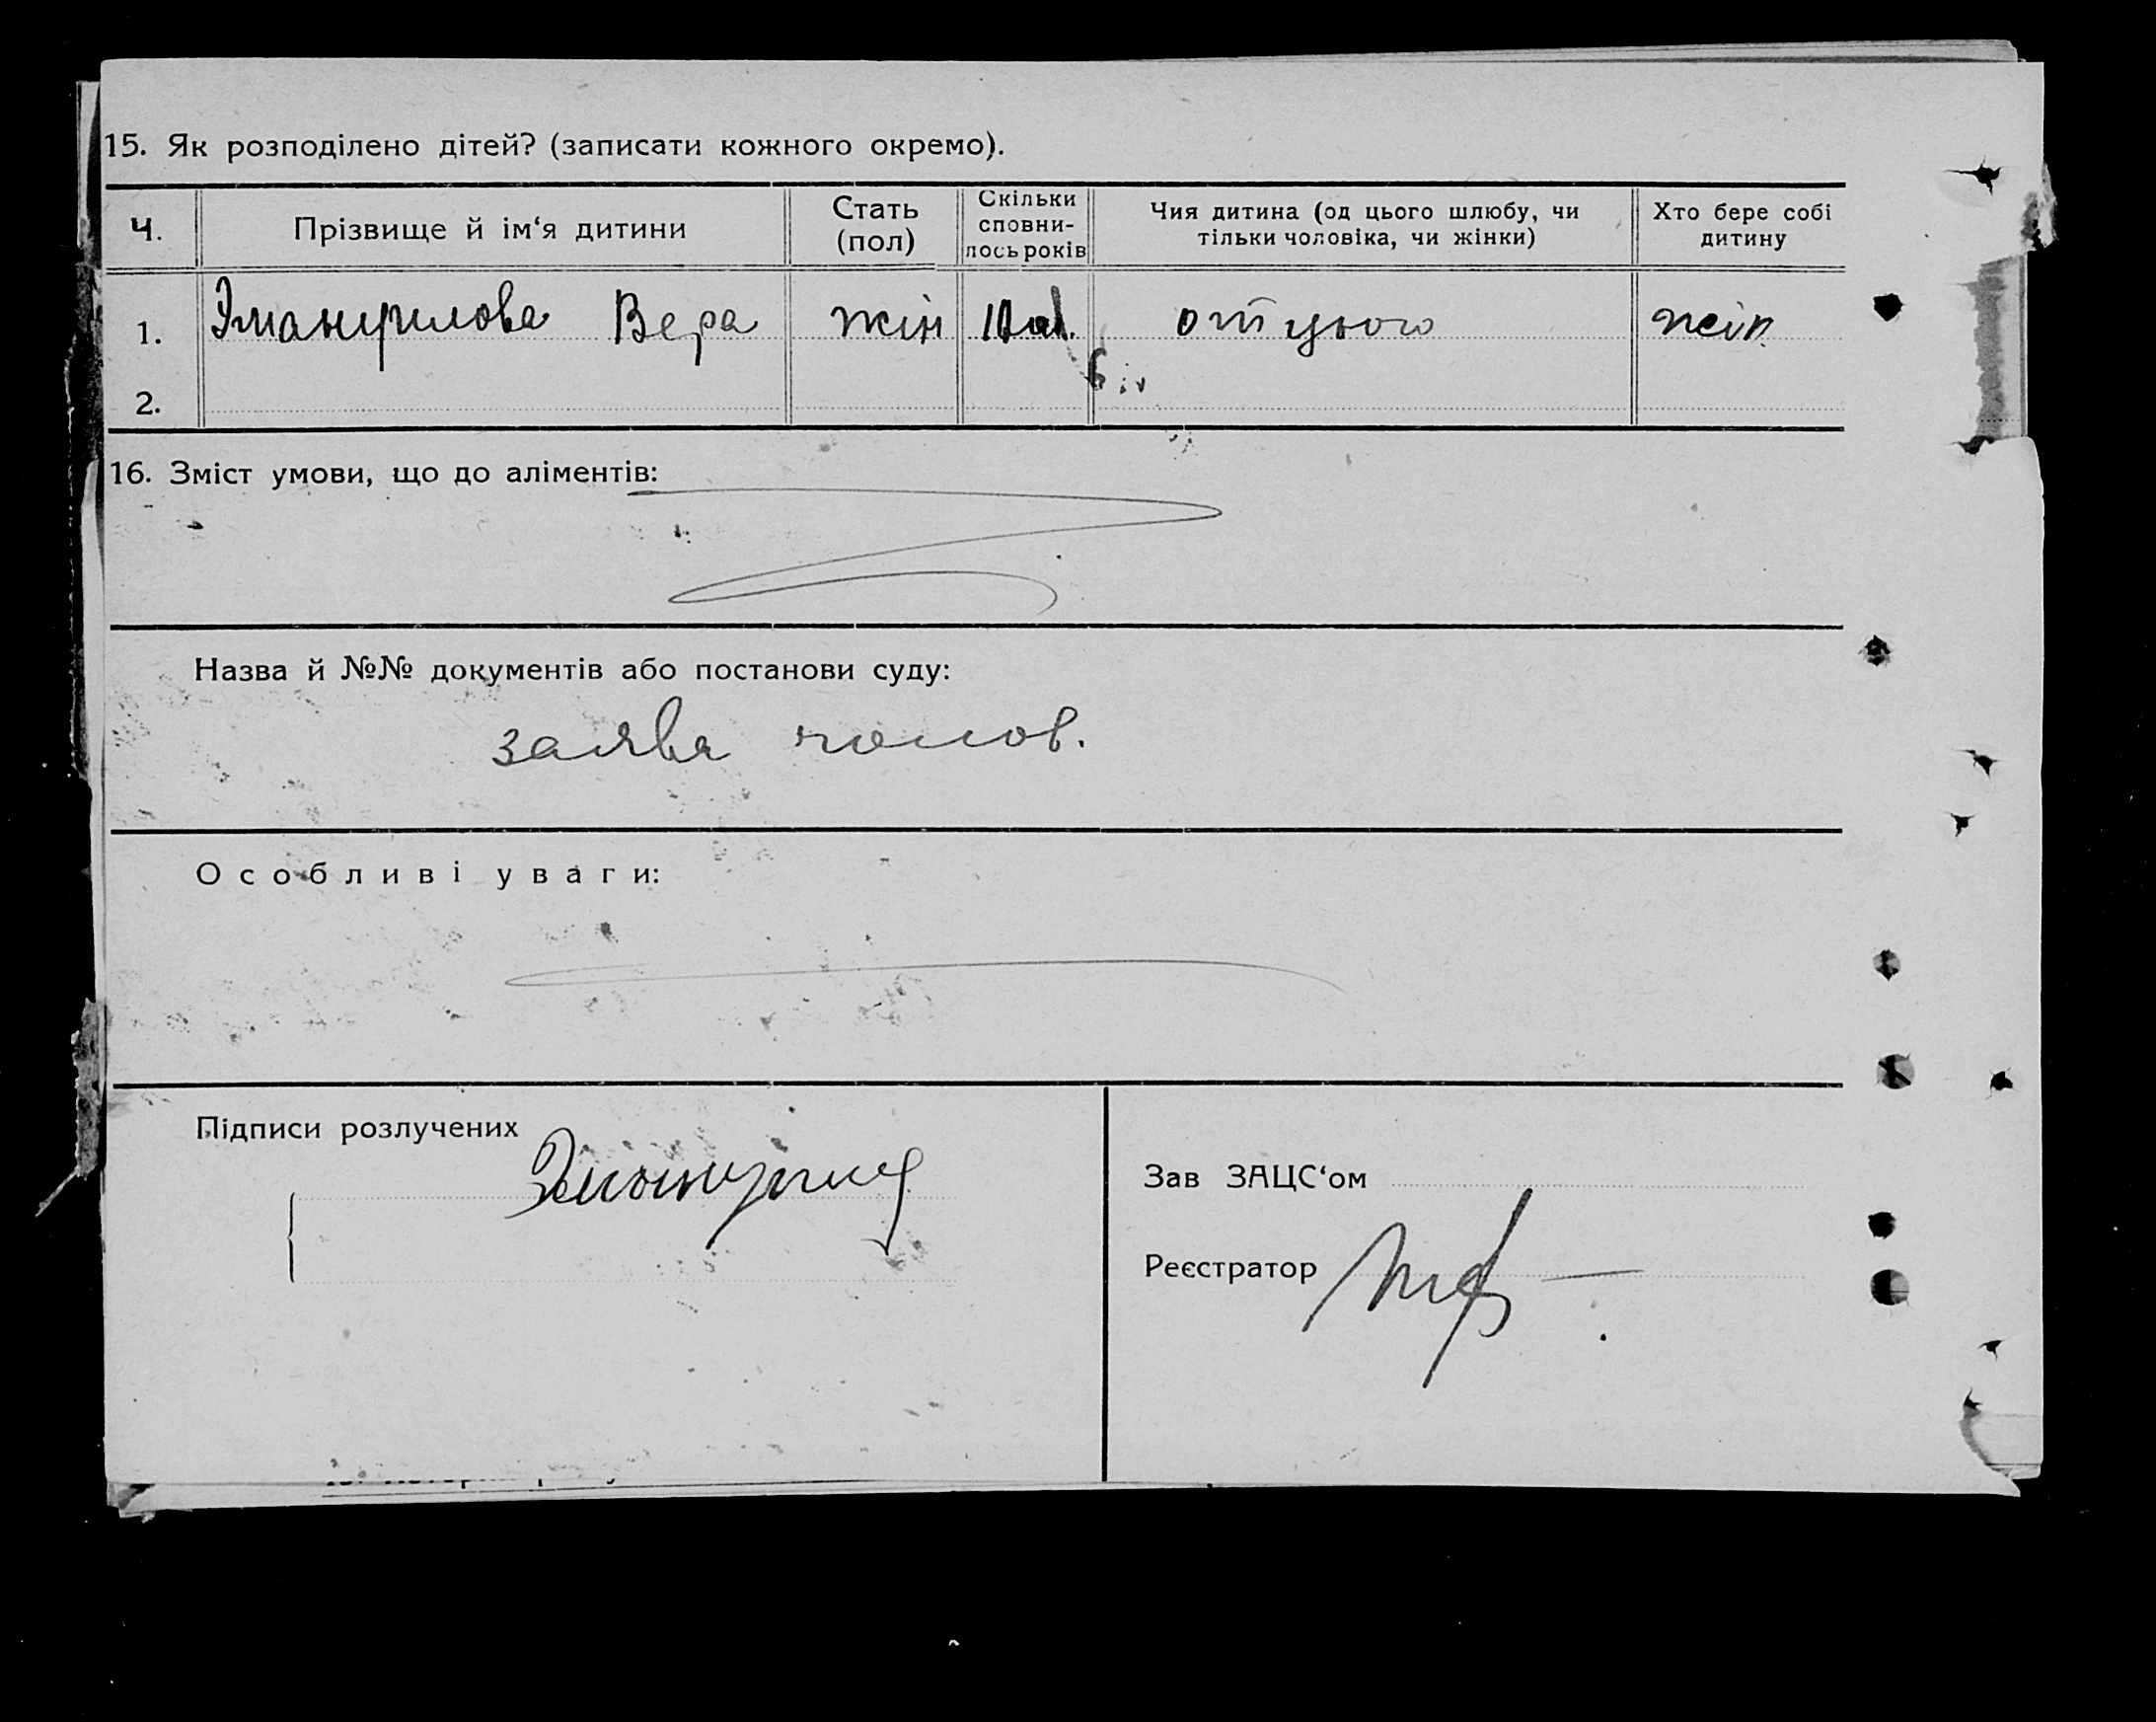 15. Як розподілено дітей? (записати кожного окремо).
Ч. Прізвище й ім‘я дитини Стать (пол) Скільки сповни-лось років Чия дитина (од цього шлюбу, чи тільки чоловіка, чи жінки) Хто бере собі дитину
1. Вера жін от цього жін.
2.
16. Зміст умови, що до аліментів:
Назва й №№ документів або постанови суду:
заява чолов.
Особливі уваги:
Підписи розлучених
Зав ЗАЦС‘ом
Реєстратор